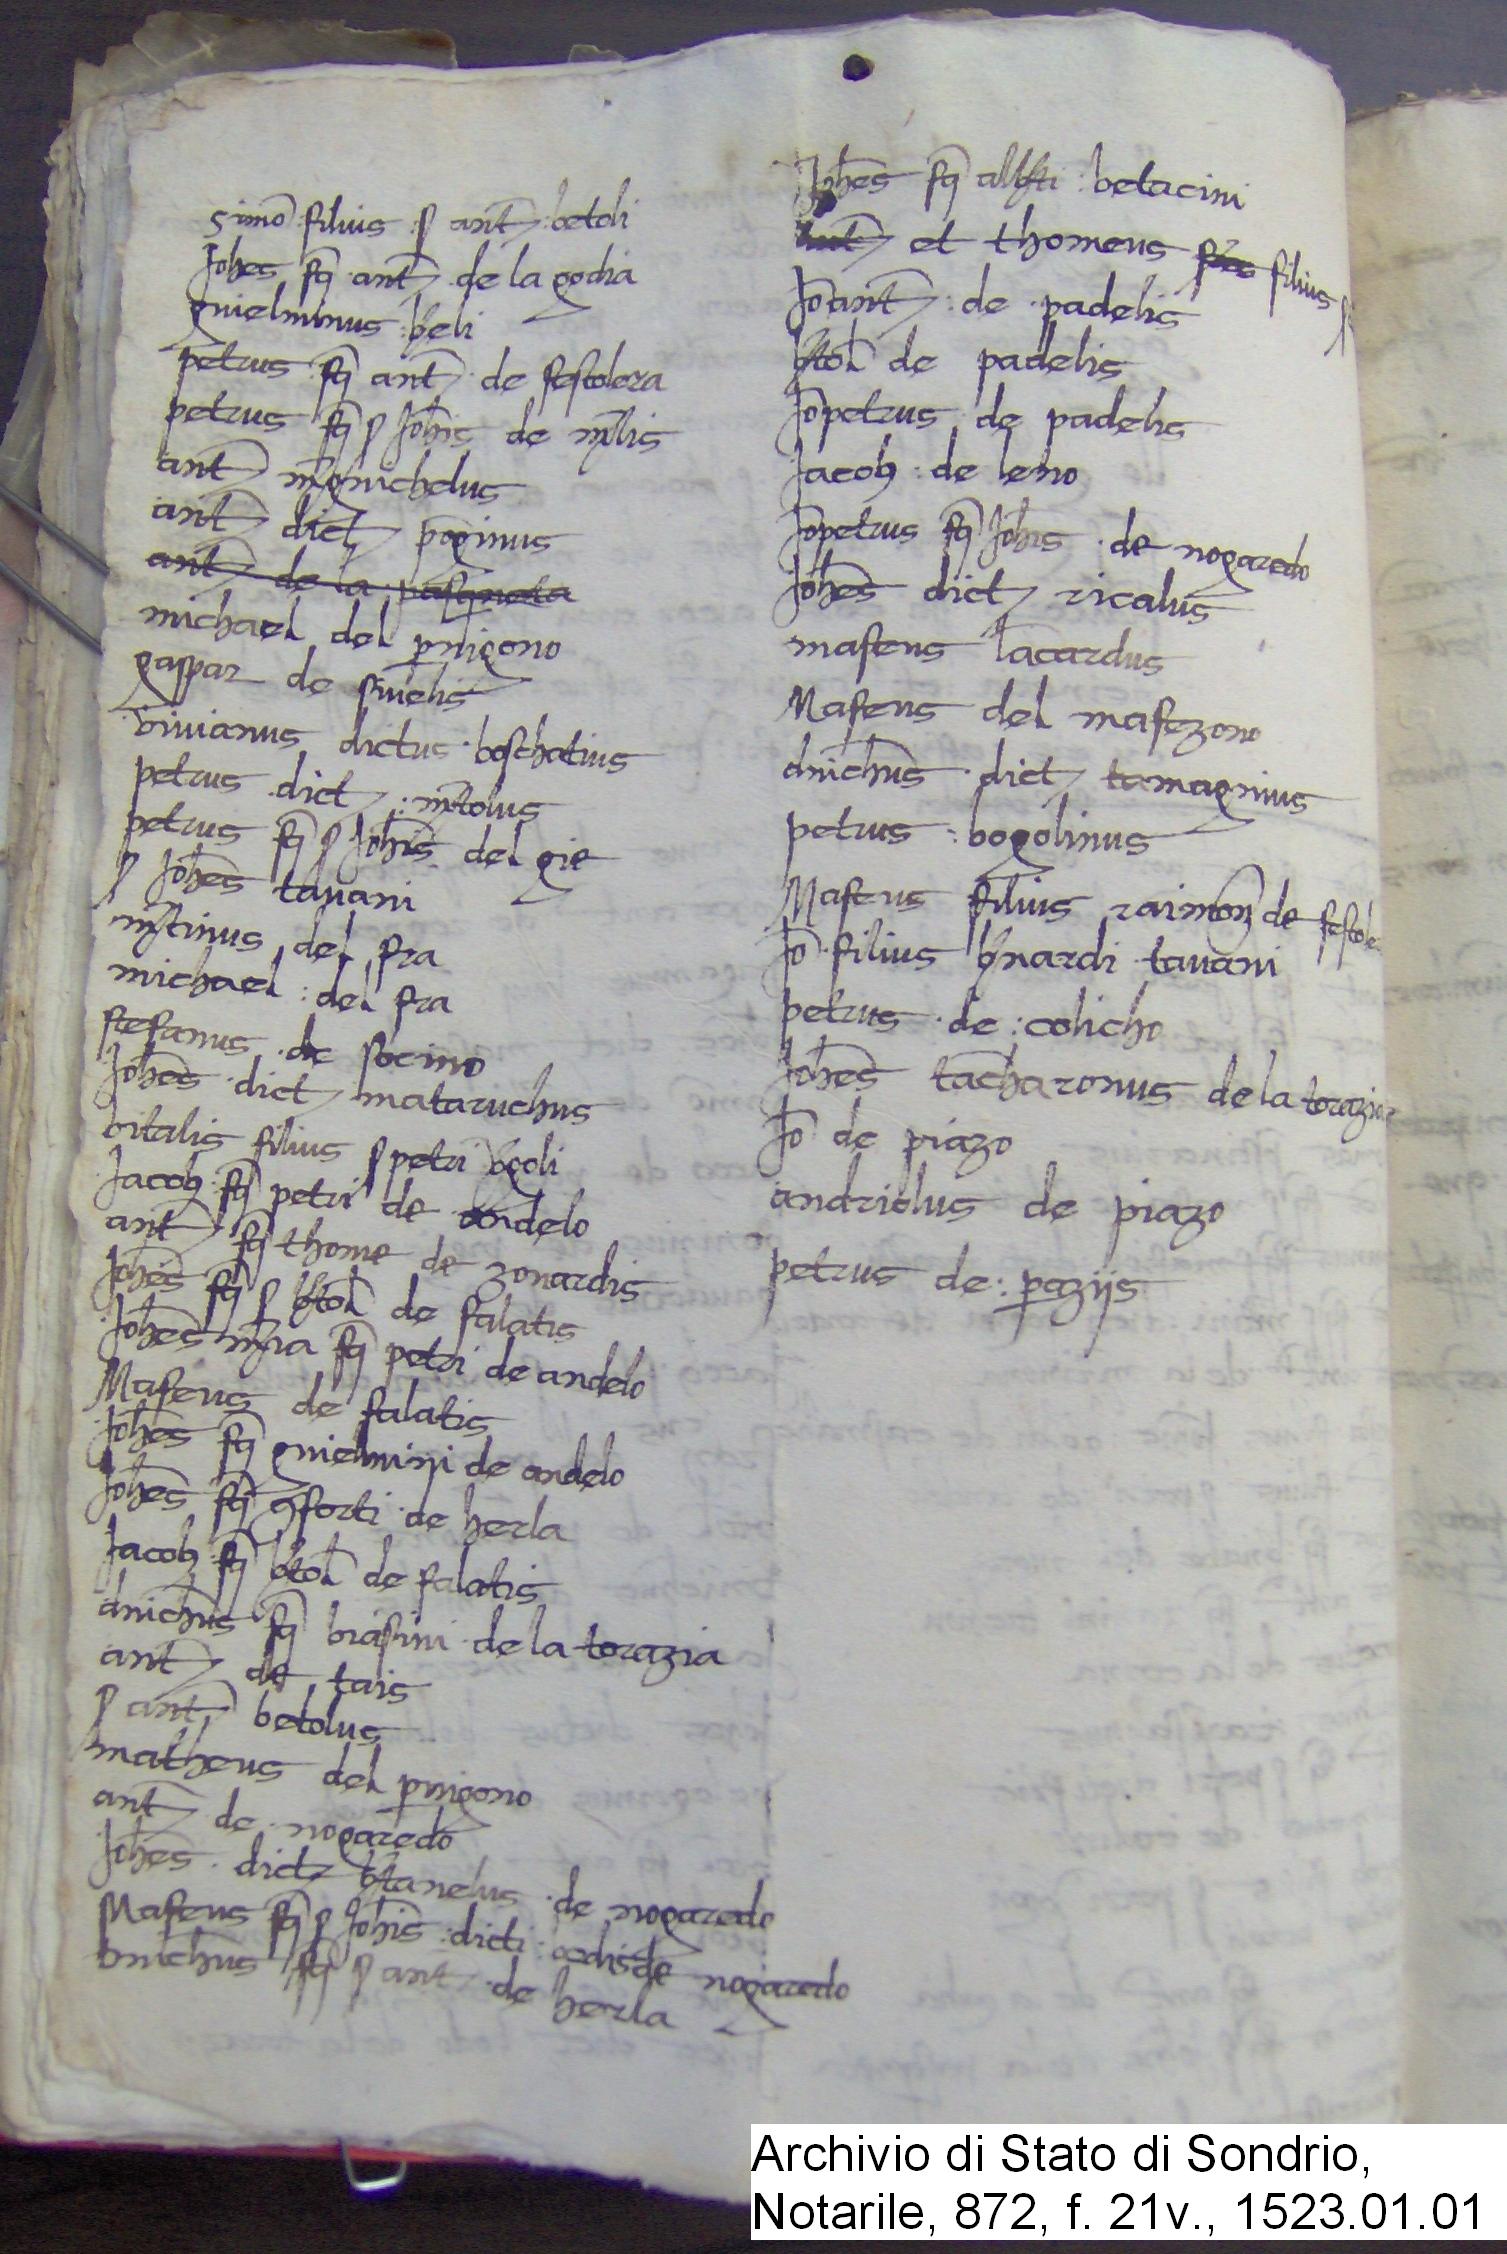 simo filius s ant betoli
Johes fq ant de la godia
guielminus beli
petrus fq ant de festolera
petrus fq s Johis de mlis
ant mgnichelus
ant dict poginus
ant de la
michael del pnigono
gaspar de
vivianus dictus boschatius
petrus dict mtolus
petrus fq s Johis del gie
s Johes tavani
mtinus del pra
michael del pra
stefanus de socino
Johes dict mataruchus
vitalis filius s petri bgoli
Jacob fq petri de andelo
ant fq thome de zonardis
Johes fq s btol de salatis
Johes mria fq petri de andelo
Mafeus de salatis
Johes fq guielmini de andelo
Johes fq 9forti de herla
Jacob fq btol de salatis
dnichus fq brasini de la torazia
ant de tais
s ant betolus
matheus del pnigono
ant de nogaredo
Johes dict btanelus de nogaredo
Mafeus fq s Johis dicti de nogaredo
bnichus fq s ant de herla
Johes fq betacini
ant et thomeus filius
Joant de padelis
btol de padelis
Jopetrus de padelis
Jacob de leno
Jopetrus fq Johis de nogaredo
Johes dict ricalus
mafeus lacardus
Mafeus del mafezono
dnichus dict tamagnius
petrus bogolinus
Mafeus filius raimon de festole
Jo filius bnardi tavani
petrus de colicho
Johes tacharonus de la torazia
Jo de piazo
andriolus de piazo
petrus de pazijs
Archivio di Stato di Sondrio,
Notarile, 872, f. 21v., 1523.01.01